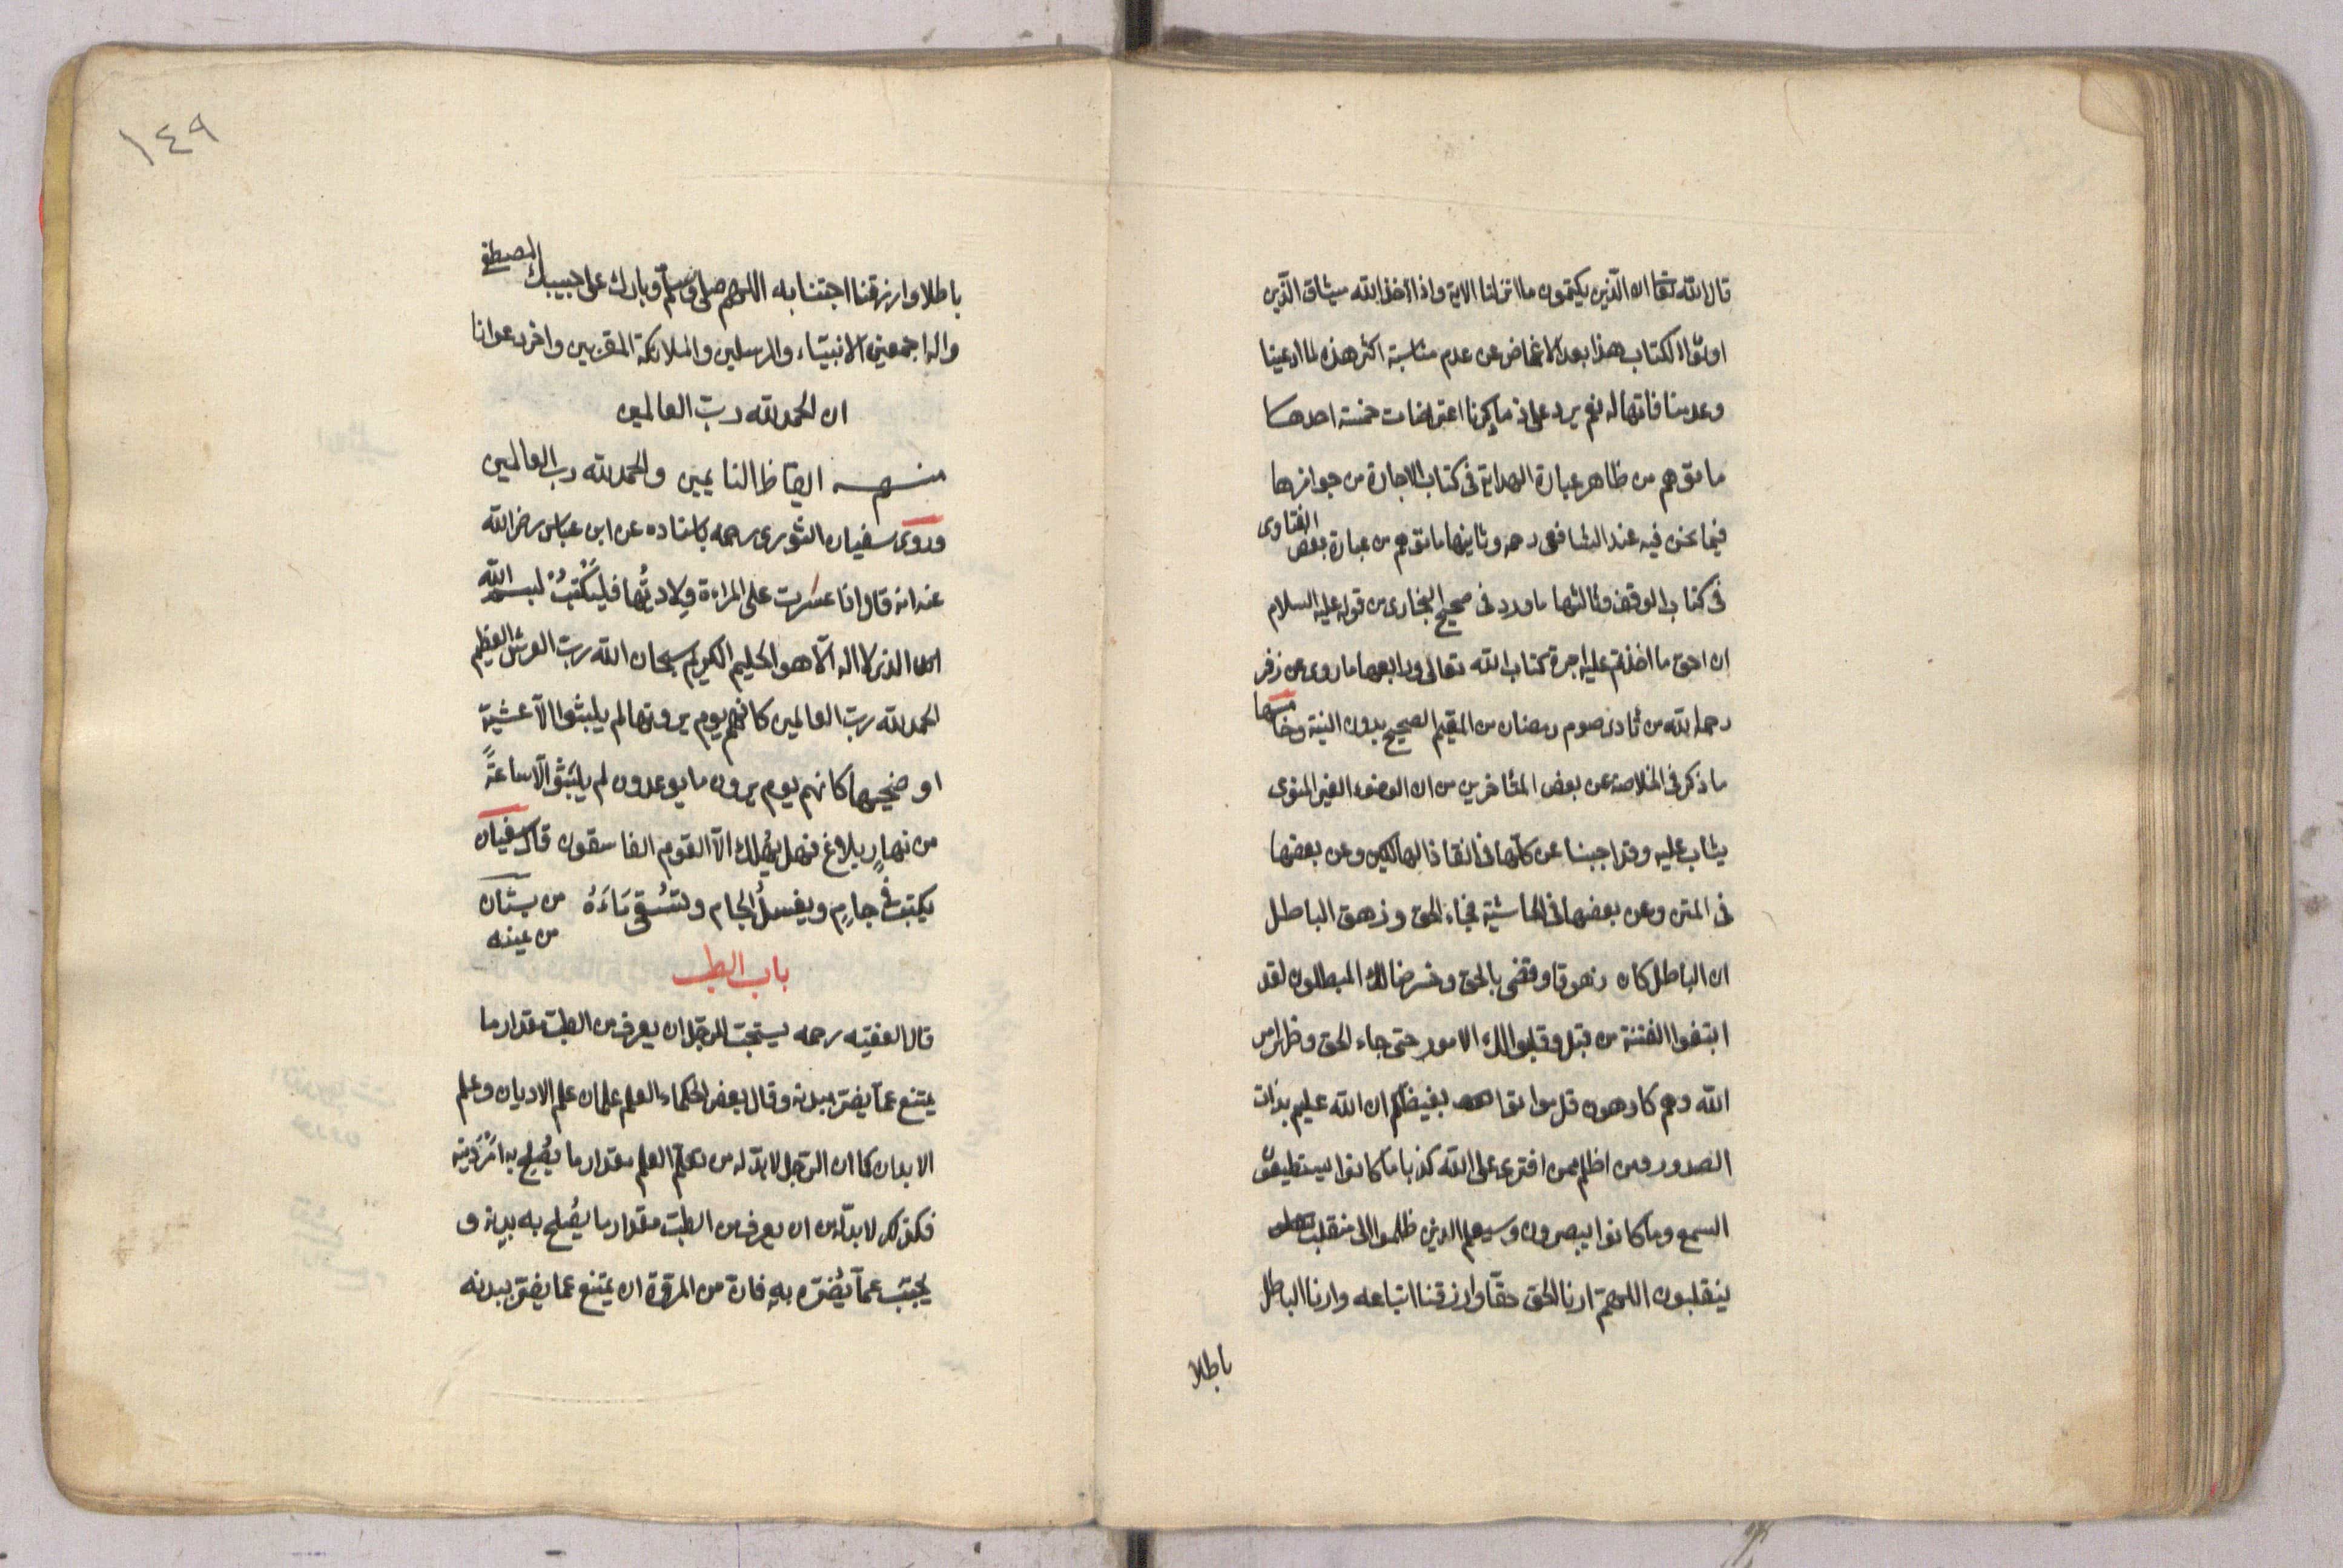 قال الله تعا ان الذين يكتمون ما انزلنا الاية واذ اخذ الله ميثاق الذين
اوتوا الكتاب هذا بعد الاغماض عن عدم مناسبة اكثر هذه لما ادعينا
وعد منافاتها له نعم يرد على ما ذكرنا اعتراضات خمسة احدها
ما توهم من ظاهر عبارة الهداية فى كتاب الاجارة من جوازها
فيما نحن فيه عند الشافعى رحمه وثانيها ما توهم من عبارة بعض الفتاوى
فى كتاب الوقف وثالثها ما ورد فى صحيح البخارى من قوله عليه السلام
ان احق ما اخذتم عليه اجرة كتاب الله تعالى ورابعها ما روى عن زفر
رحمه الله من تادى صوم رمضان من المقيم الصحيح بدون النية وخامسها
ما ذكر فى الخلاصة عن بعض المتاخرين من ان الوضوء الغير المنوى
يثاب عليه وقد اجبنا عن كلها فى انقاذ الهالكين وعن بعضها
فى المتن وعن بعضها فى الحاشية فجاء الحق وزهق الباطل
ان الباطل كان زهوقا وقضى بالحق وخسر هنالك المبطلون لقد
ابتغوا الفتنة من قبل وقلبوا لك الامور حتى جاء الحق وظهر امر
الله وهم كارهون قل موتوا بغيظكم ان الله عليم بذات
الصدور ومن اظلم ممن افترى على الله كذبا ما كانوا يستطيعون
السمع وما كانوا يبصرون وسيعلم الذين ظلموا اى منقلب
ينقلبون اللهم ارنا الحق حقا وارزقنا اتباعه وارنا الباطل
باطلا
١٤٩
باطلا وارزقنا اجتنابه اللهم صلى وسلم وبارك على حبيبك المصطفى
واله اجمعين الانبياء والمرسلين والملائكة المقربين واخر دعوانا
ان الحمد لله رب العالمين
ايقاظ النايمين والحمد لله رب العالمين
وروى سفيان الثورى رحمه باسناده عن ابن عباس رضى الله
عنه انه قال اذا عسرت على المراة ولادتها فليكتب لبسم الله
الذى لا اله الا هو الحليم الكريم سبحان الله رب العرش العظيم
الحمد لله رب العالمين كانهم يوم يرونها لم يلبثوا الا عشية
او ضحيها كانهم يوم يرون ما يوعدون لم يلبثوا الا ساعة
من نهار بلاغ فهل يهلك الا القوم الفاسقون قال سفيان
يكتب فى جام ويغسل الجام ولتسقى ماءه من بستان
من عينه
باب الطب
قال الفقيه رحمه يستحب للرجل ان يعرف من الطب مقدار ما
يمتنع عما يضر ببدنه وقال بعض الحكماء العلم علمان علم الاديان وعلم
الابدان كما ان الرجل لا بد له من تعلم العلم مقدار ما يصلح به امر دينه
فكذلك لا بد له من ان يعرف من الطب مقدار ما يصلح به بدنه و
يجتنب عما يضره به فان من المروة ان يمتنع عما يضر ببدنه